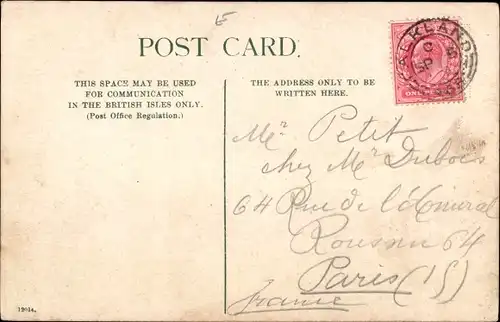 POST CARD.
THIS SPACE MAY BE USED
FOR COMMUNICATION
IN THE BRITISH ISLES ONLY.
(Post Office Regulation.)
THE ADDRESS ONLY TO BE
WRITTEN HERE.
Mr Petit
chez Mr Dubois
64 Rue de l'Amiral
Roussin 64
Paris (15)
France